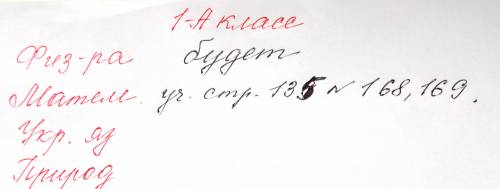 1-А класс
Физ-ра будет
Матем. уч. стр. 135 № 168, 169.
Укр. яз
Природ